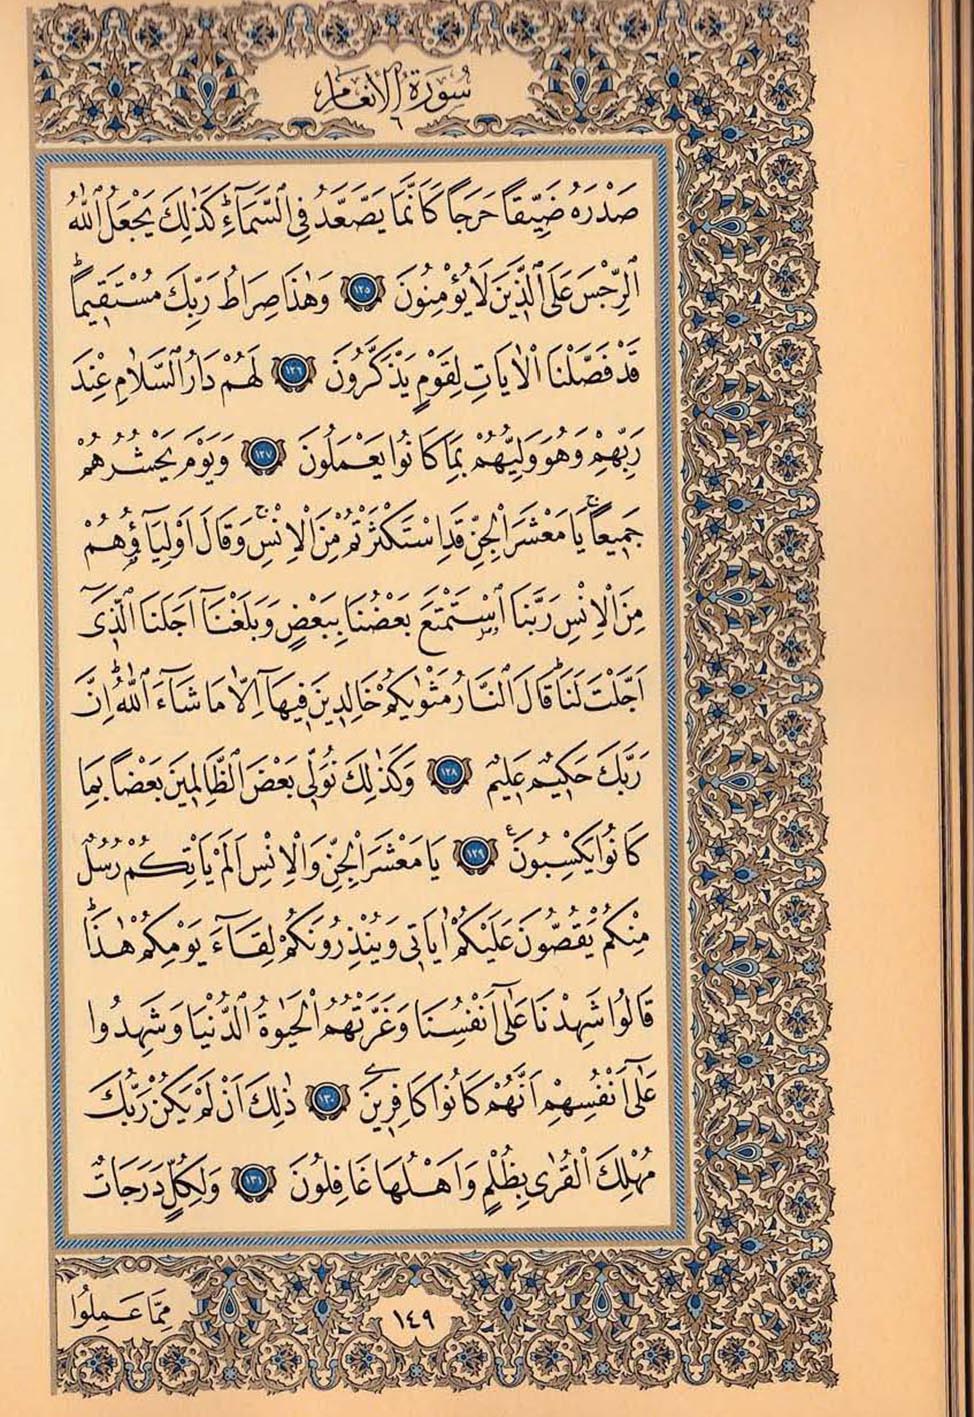 سُورَةُ الْاَنْعَامِ
٦
صَدْرَهُ ضَيِّقًا حَرَجًا كَاَنَّمَا يَصَّعَّدُ فِي السَّمَٓاءِۜ كَذٰلِكَ يَجْعَلُ اللّٰهُ
الرِّجْسَ عَلَى الَّذِينَ لَا يُؤْمِنُونَ ١٢٥ وَهٰذَا صِرَاطُ رَبِّكَ مُسْتَقِيمًاۜ
قَدْ فَصَّلْنَا الْاٰيَاتِ لِقَوْمٍ يَذَّكَّرُونَ ١٢٦ لَهُمْ دَارُ السَّلَامِ عِنْدَ
رَبِّهِمْ وَهُوَ وَلِيُّهُمْ بِمَا كَانُوا يَعْمَلُونَ ١٢٧ وَيَوْمَ يَحْشُرُهُمْ
جَمِيعًاۚ يَا مَعْشَرَ الْجِنِّ قَدِ اسْتَكْثَرْتُمْ مِنَ الْاِنْسِۚ وَقَالَ اَوْلِيَٓاؤُ۬هُمْ
مِنَ الْاِنْسِ رَبَّنَا اسْتَمْتَعَ بَعْضُنَا بِبَعْضٍ وَبَلَغْنَٓا اَجَلَنَا الَّذِٓى
اَجَّلْتَ لَنَاۜ قَالَ النَّارُ مَثْوٰيكُمْ خَالِدِينَ فِيهَٓا اِلَّا مَا شَٓاءَ اللّٰهُۜ اِنَّ
رَبَّكَ حَكِيمٌ عَلِيمٌ ١٢٨ وَكَذٰلِكَ نُوَلِّى بَعْضَ الظَّالِمِينَ بَعْضًا بِمَا
كَانُوا يَكْسِبُونَ۟ ١٢٩ يَا مَعْشَرَ الْجِنِّ وَالْاِنْسِ اَلَمْ يَأْتِكُمْ رُسُلٌ
مِنْكُمْ يَقُصُّونَ عَلَيْكُمْ اٰيَاتِى وَيُنْذِرُونَكُمْ لِقَٓاءَ يَوْمِكُمْ هٰذَاۜ
قَالُوا شَهِدْنَا عَلٰٓى اَنْفُسِنَا وَغَرَّتْهُمُ الْحَيٰوةُ الدُّنْيَا وَشَهِدُوا
عَلٰٓى اَنْفُسِهِمْ اَنَّهُمْ كَانُوا كَافِرِينَ ١٣٠ ذٰلِكَ اَنْ لَمْ يَكُنْ رَبُّكَ
مُهْلِكَ الْقُرٰى بِظُلْمٍ وَاَهْلُهَا غَافِلُونَ ١٣١ وَلِكُلٍّ دَرَجَاتٌ
مِمَّا عَمِلُوا
١٤٩